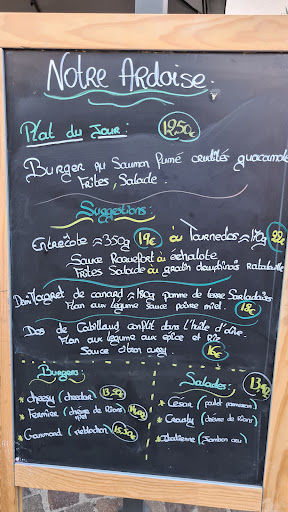 Notre Ardoise.
Plat du Jour : 12,50€
Burger au Saumon fumé crudités guacamole
Frites, Salade.
Suggestions :
Entrecôte ≈350g 19€ ou Tournedos ≈170g 22€
Sauce Roquefort ou échalote
Frites Salade ou gratin dauphinois Ratatouille
Demi Magret de canard ≈180g pomme de terre Sarladaises
Flan aux légume Sauce poivre miel. 18€
Dos de Cabillaud confit dans l'huile d'olive.
Flan aux légume aux épice et Riz
Sauce citron curry. 16€
Burgers
Salades : 13,50
* cheesy (cheddar) 13,50
* Cesar (poulet parmesan)
* Fermier (chèvre de Rians)
* Crousty (chèvre de Rians)
* Gourmand (reblochon) 15,50€
* Italienne (Jambon cru)